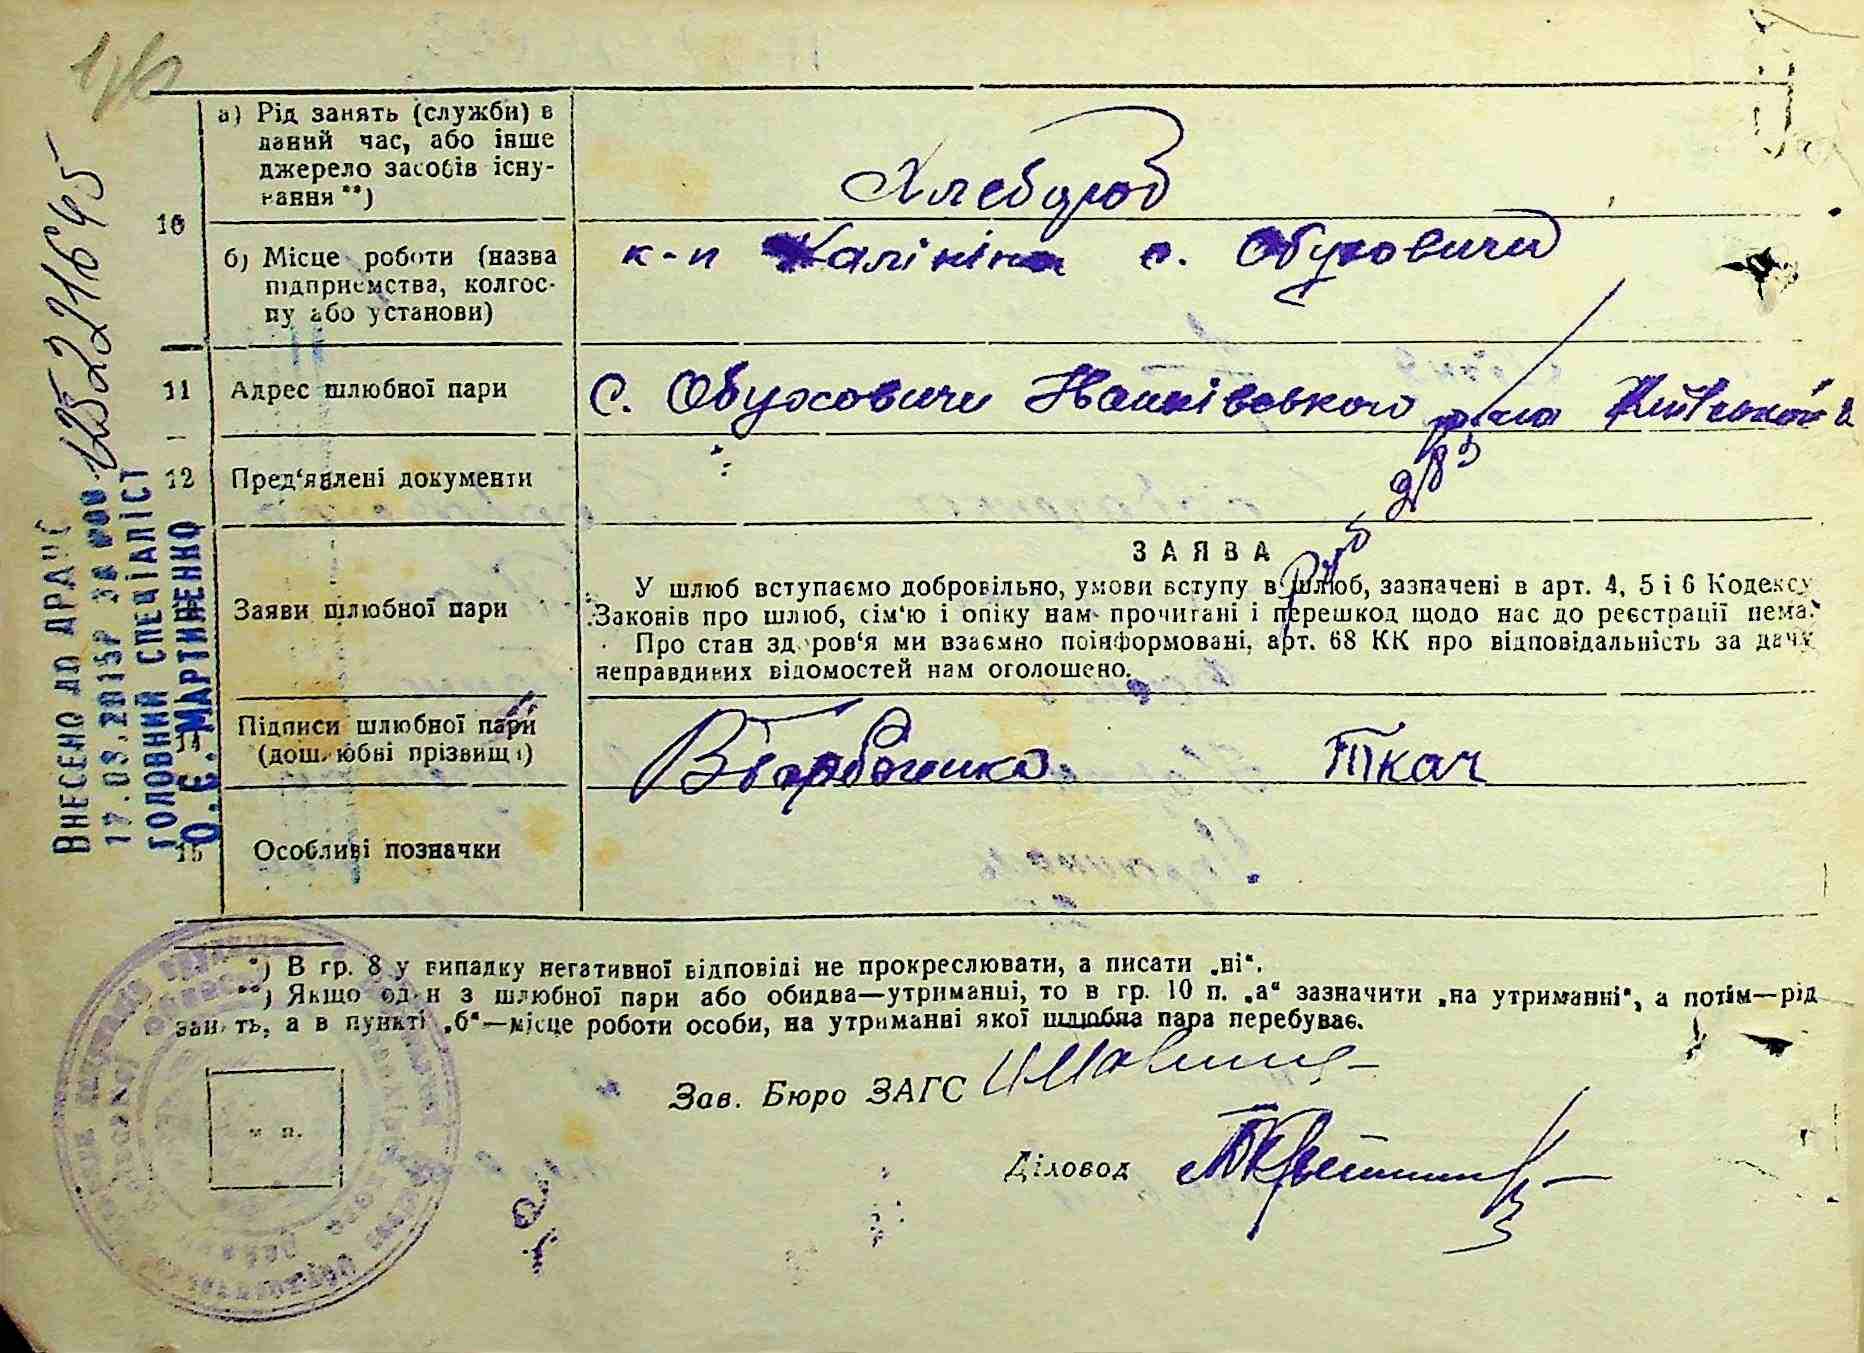 10
а) Рід занять (служби) в
даний час, або інше
джерело засобів існу-
вання **)
Хлебороб
б) Місце роботи (назва
підприємства, колгос-
пу або установи)
к-п Калініна с. Обуховичи
11 Адрес шлюбної пари
с. Обуховичи Іванківського р-на Київської
12 Пред‘явлені документи
Заяви шлюбної пари
ЗАЯВА
У шлюб вступаємо добровільно, умови вступу в шлюб, зазначені в арт. 4, 5 і 6 Кодексу
Законів про шлюб, сім‘ю і опіку нам прочитані і перешкод щодо нас до реєстрації нема.
Про стан здоров‘я ми взаємно поінформовані, арт. 68 КК про відповідальність за дачу
неправдивих відомостей нам оголошено.
14 Підписи шлюбної пари
(дошлюбні прізвища)
Ткач
15 Особливі позначки
*) В гр. 8 у випадку негативної відповіді не прокреслювати, а писати „ні“.
**) Якщо один з шлюбної пари або обидва—утриманці, то в гр. 10 п. „а“ зазначити „на утриманні“, а потім—рід
занять, а в пункті „б“—місце роботи особи, на утриманні якої шлюбна пара перебуває.
Зав. Бюро ЗАГС
Діловод
м п.
ВНЕСЕНО ДО ДРАЦС
17.08.2015Р ЗА №00 125221645
ГОЛОВНИЙ СПЕЦІАЛІСТ
О.Є. МАРТИНЕНКО